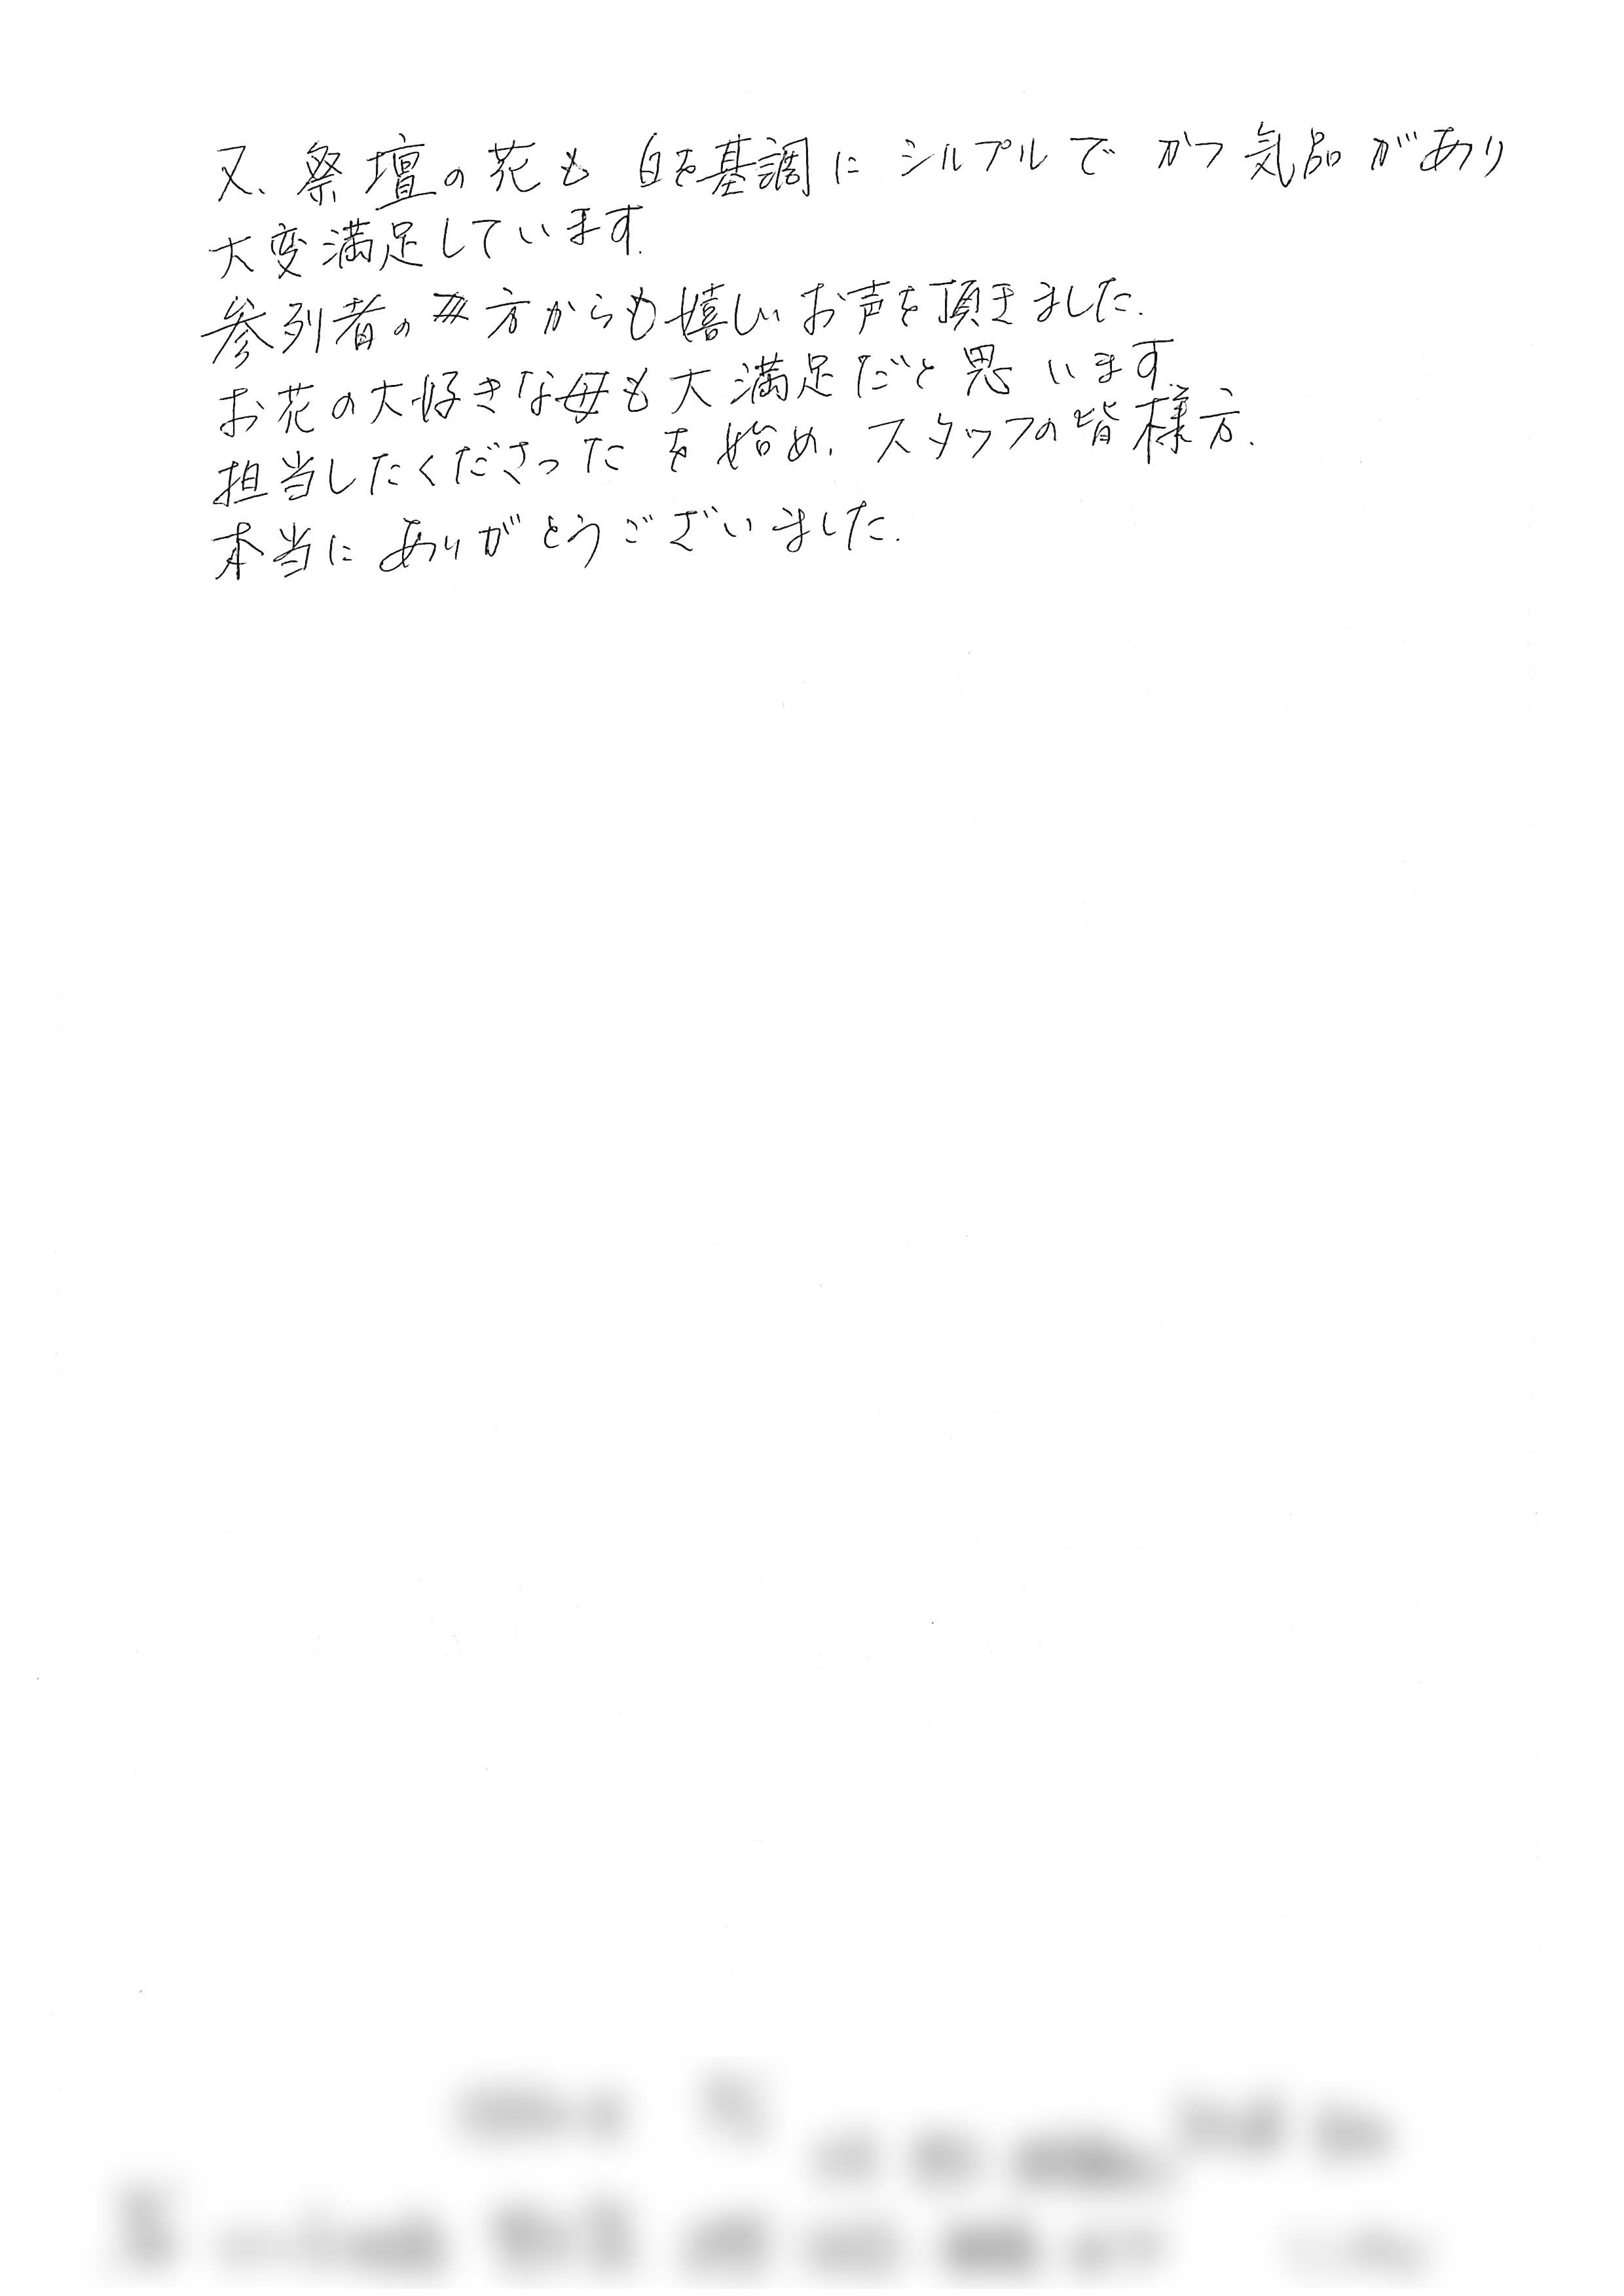 又、祭壇の花も 白を基調に シルプルで かつ気品があり
大変満足しています.
参列者の方からも嬉しいお声を頂きました.
お花の大好きな母も大満足だと思います.
担当したくださった を始め、スタッフの皆様方.
本当にありがとうございました.